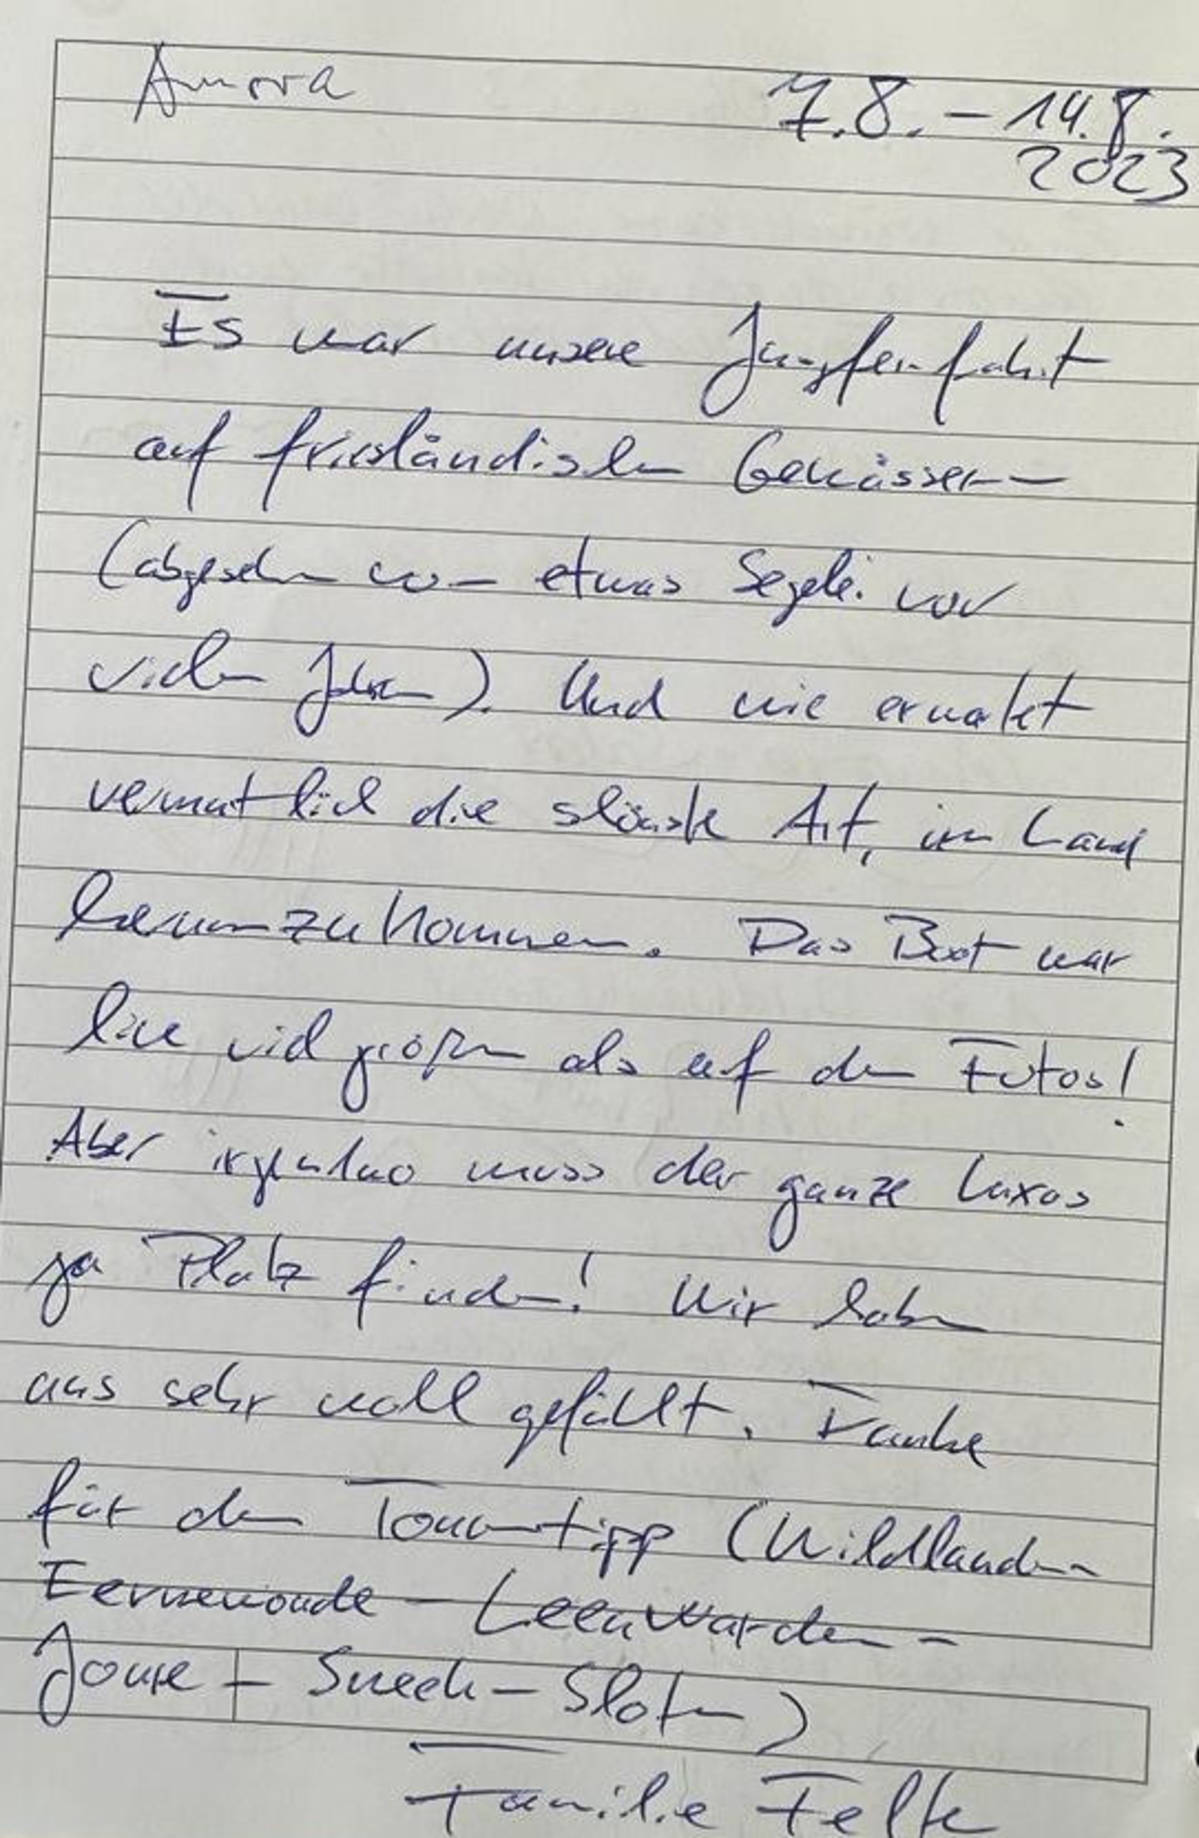 Amora 7.8. – 14.8.
2023
Es war unsere Jungfernfahrt
auf friesländischen Gewässern
(abgesehen von etwas Segeln vor
vielen Jahren). Und wie erwartet
vermutlich die schönste Art, im Land
herumzukommen. Das Boot war
live viel größer als auf den Fotos!
Aber irgendwo muss der ganze Luxus
ja Platz finden! Wir haben
uns sehr wohl gefühlt. Danke
für den Tourentipp (Wildlanden
Eernewoude – Leeuwarden –
Joure – Sneek – Sloten)
Familie